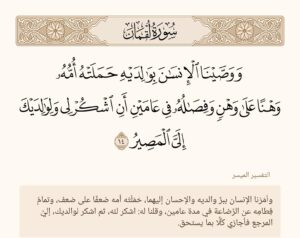 سُورَةُ لُقْمَان
وَوَصَّيْنَا ٱلْإِنسَٰنَ بِوَٰلِدَيْهِ حَمَلَتْهُ أُمُّهُۥ
وَهْنًا عَلَىٰ وَهْنٍ وَفِصَٰلُهُۥ فِى عَامَيْنِ أَنِ ٱشْكُرْ لِى وَلِوَٰلِدَيْكَ
إِلَىَّ ٱلْمَصِيرُ ١٤
التفسير الميسر
وأمَرْنا الإنسان ببرِّ والديه والإحسان إليهما، حَمَلَتْه أمه ضعفًا على ضعف، وتمام
فِطامه عن الرَّضاعة في مدة عامين، وقلنا له: اشكر لله، ثم اشكر لوالديك، إليَّ
المرجع فأُجازي كُلًّا بما يستحق.